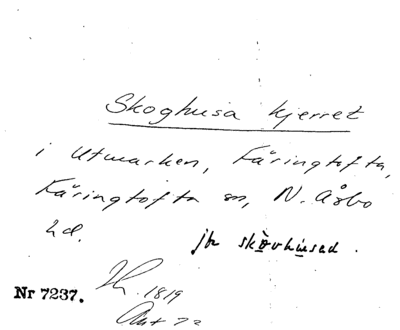 Skoghusa kjerret
i Utmarken, Färingtofta,
Färingtofta sn, N. Åsbo
hd.
jfr skòvhùsad.
Nr 7237.
1819